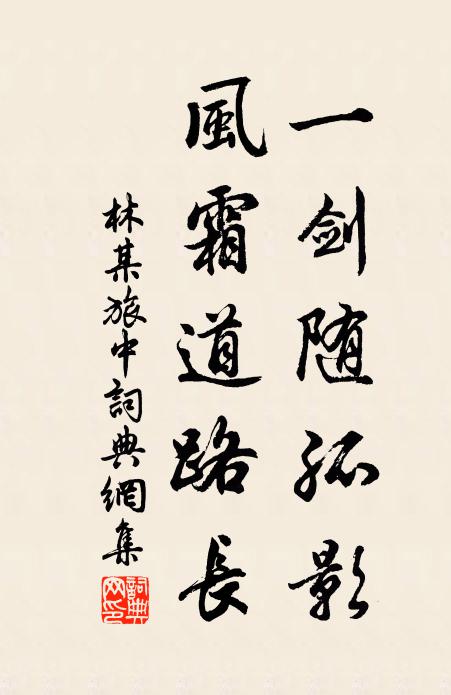 一剑随孤影
風霜道路長
林某旅中詞典網集
詞典網印